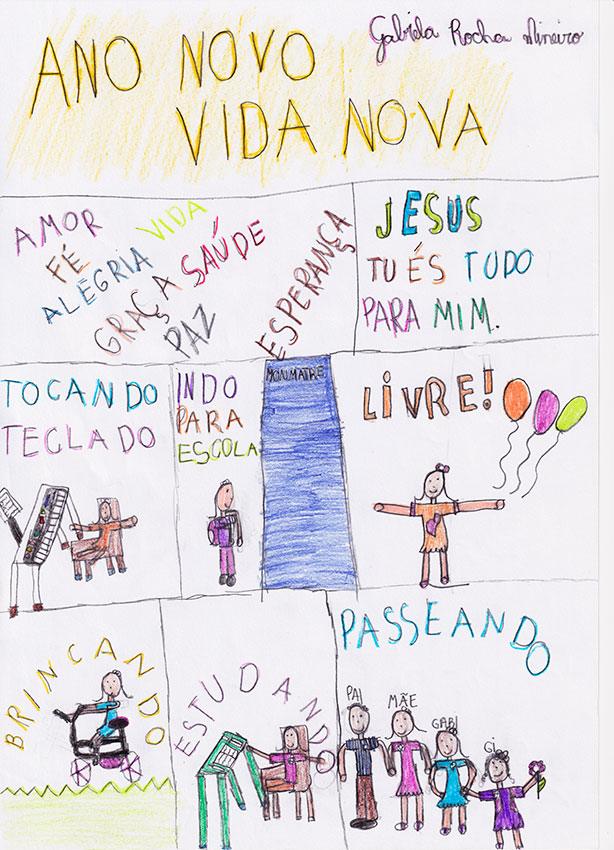 Gabriela Rocha Mineiro
ANO NOVO
VIDA NOVA
AMOR
VIDA
FÉ
ALEGRIA
SAÚDE
GRAÇA
PAZ
ESPERANÇA
JESUS
TU ÉS TUDO
PARA MIM.
TOCANDO
TECLADO
INDO
PARA
ESCOLA
MONMATRE
LIVRE!
BRINCANDO
ESTUDANDO
PASSEANDO
PAI
MÃE
GABI
GI